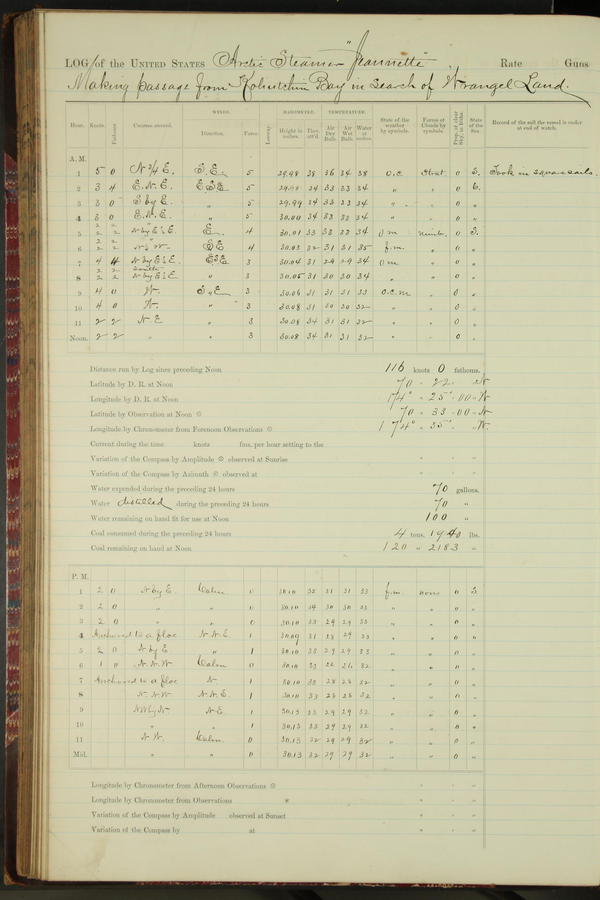 LOG of the UNITED STATES Arctic Steamer "Jeannette" Rate Guns
Making passage from Koliutchin Bay in search of Wrangel Land.
WINDS. BAROMETER. TEMPERATURE.
Hour. Knots. Fathoms. Courses steered. Direction. Force. Leeway. Height in inches. Ther. att'd. Air Dry Bulb. Air Wet Bulb. Water at surface. State of the weather by symbols. Forms of Clouds by symbols. Prop. of clear Sky, in tenths State of the Sea. Record of the sail the vessel is under at end of watch.
A. M.
1 5 0 N 3/4 E. S.E. 5 29.98 38 36 34 38 o.c. Strat. 0 S. Took in square sails.
2 3 4 E.N.E. ESE 5 29.98 34 33 33 34 " " 0 6.
3 3 0 S by E. " 5 29.99 34 33 33 34 " " 0 "
4 3 0 E.N.E. " 5 30.00 34 33 33 34 " " 0 "
5 2 2 2 2 N by E 1/2 E E. 4 30.01 33 33 33 34 o m Nimb. 0 S.
6 2 2 2 2 SE 4 30.03 32 31 31 35 f.m. " 0 "
7 4 4 N by E 1/2 E ESE 3 30.04 31 29 29 34 o m " 0 "
8 2 2 2 2 N by E 1/2 E " 3 30.05 31 30 30 34 " " 0 "
9 4 0 N. S.E 3 30.06 31 31 31 33 o.c.m " 0 "
10 4 0 N. " 3 30.08 31 30 30 32 " " 0 "
11 2 2 N.E " 3 30.08 34 31 31 32 " " 0 "
Noon. 2 2 " " 3 30.08 34 31 31 32 " " 0 "
Distance run by Log since preceding Noon 116 knots 0 fathoms.
Latitude by D. R. at Noon 70 " 22 " N
Longitude by D. R. at Noon 174° " 25' " 00 " W
Latitude by Observation at Noon 70 " 33 " 00 " N
Longitude by Chronometer from Forenoon Observations 174° " 35' " W
Current during the time knots fms. per hour setting to the
Variation of the Compass by Amplitude observed at Sunrise
Variation of the Compass by Azimuth observed at
Water expended during the preceding 24 hours 70 gallons.
Water distilled during the preceding 24 hours 70 "
Water remaining on hand fit for use at Noon 100 "
Coal consumed during the preceding 24 hours 4 tons. 1940 lbs.
Coal remaining on hand at Noon 120 " 2183 "
P. M.
1 2 0 N by E. Calm 0 30.10 32 31 31 33 f.m. none 0 S.
2 2 0 " " 0 30.10 34 30 30 33 " " 0 "
3 2 0 " " 0 30.10 33 29 29 33 " " 0 "
4 Anchored to a floe N.N.E. 1 30.09 31 28 29 33 " " 0 "
5 2 0 N by E " 1 30.10 33 29 29 33 " " 0 "
6 1 0 N.N.W Calm 0 30.10 33 22 21 32 " " 0 "
7 Anchored to a floe N 1 30.10 33 28 28 32 " " 0 "
8 N.N.W N.N.E. 1 30.10 33 28 28 32 " " 0 "
9 NW by N N.E 1 30.13 33 29 29 32 " " 0 "
10 " " 1 30.13 33 29 29 32 " " 0 "
11 N.W. Calm 0 30.13 32 29 29 32 " " 0 "
Mid. " " 0 30.13 32 29 29 32 " " 0 "
Longitude by Chronometer from Afternoon Observations
Longitude by Chronometer from Observations *
Variation of the Compass by Amplitude observed at Sunset
Variation of the Compass by at